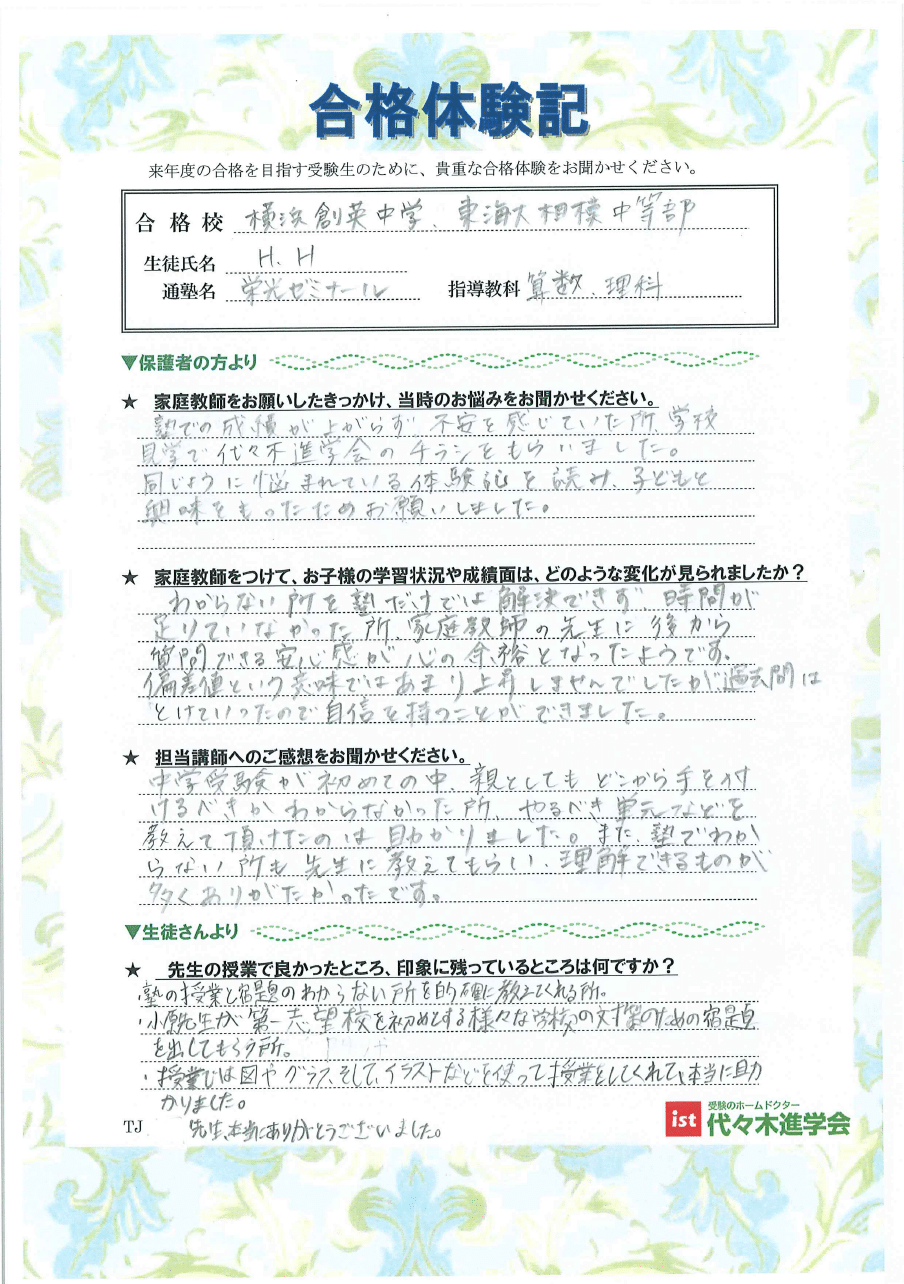 合格体験記
来年度の合格を目指す受験生のために、貴重な合格体験をお聞かせください。
合格校 横浜創英中学、東海大相模中等部
生徒氏名 H.H
通塾名 栄光ゼミナール 指導教科 算数、理科
▼保護者の方より
★ 家庭教師をお願いしたきっかけ、当時のお悩みをお聞かせください。
塾での成績が上がらず、不安を感じていた所、学校
見学で代々木進学会のチラシをもらいました。
同じように悩まれている体験記を読み、子どもと
興味をもったためお願いしました。
★ 家庭教師をつけて、お子様の学習状況や成績面は、どのような変化が見られましたか？
わからない所を塾だけでは解決できず、時間が
足りていなかった所、家庭教師の先生に後から
質問できる安心感が心の余裕となったようです。
偏差値という意味ではあまり上昇しませんでしたが過去問は
とけていったので自信を持つことができました。
★ 担当講師へのご感想をお聞かせください。
中学受験が初めての中、親としてもどこから手を付
けるべきかわからなかった所、やるべき単元などを
教えて頂けたのは助かりました。また、塾でわか
らない所も先生に教えてもらい、理解できるものが
多くありがたかったです。
▼生徒さんより
★ 先生の授業で良かったところ、印象に残っているところは何ですか？
・塾の授業と宿題のわからない所を的確に教えてくれる所。
・小原先生が第一志望校を初めとする様々な学校の対策のための宿題
を出してもらう所。
・授業では図やグラフ、そして、イラストなどを使って授業をしてくれて、本当に助
かりました。
先生、本当にありがとうございました。
TJ
ist 受験のホームドクター
代々木進学会